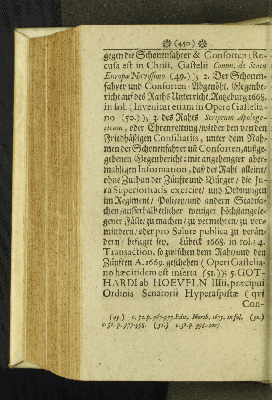 (450)
gegen die Schonenfahrer & Consorten (Re-
cusa est in Christi. Gastelii Comm. de Statu
Europæ Novissimo (49.)); 2. Der Schonen-
fahrer und Consorten Abgenöht. Gegenbe-
richt auf des Raths Unterricht, Ratzeburg 1668.
in fol. (Invenitur etiam in Opere Gastelia-
no (50.)); 3. des Raths Scriptum Apologe-
ticum, oder Ehrenrettung/wieder den von den
Friedhäßigen Conciliariis, unter dem Nah-
men der Schonenfahrer uñ Consorten, außge-
gebenen Gegenbericht; mit angehengter aber-
mahligen Information, daß der Raht alleine/
ohne Zuthun der Zünffte und Bürger/ die Ju-
ra Superioritatis exercire/ und Ordnungen
im Regiment/ Policey/und andern Stadtsa-
chen/ausserhalb etlicher weniger höchstangele-
gener Fälle/zu machen/zu vermehren/zu ver-
mindern/oder pro Salute publica zu verän-
dern/ befuget sey. Lübeck 1668. in fol.; 4.
Transaction, so zwischen dem Raht/und den
Zünfften A. 1669. geschehen (Operi Gastelia-
no hæc itidem est inserta (51.)); 5. GOT-
HARDI ab HOEVELN Illii, præcipui
Ordinis Senatorii Hyperaspistæ (qvi
Con-
(49.) c. 32. p. 967-977. Edit. Norib. 1675. in fol. (50.)